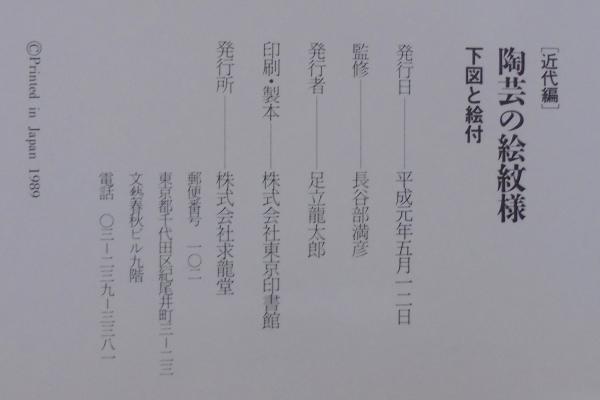 ［近代編］
陶芸の絵紋様
下図と絵付
発行日────平成元年五月一二日
監修────長谷部満彦
発行者────足立龍太郎
印刷・製本────株式会社東京印書館
発行所────株式会社求龍堂
郵便番号　一〇二
東京都千代田区紀尾井町三−二三
文藝春秋ビル九階
電話　〇三−二三九−三三八一
©Printed in Japan 1989